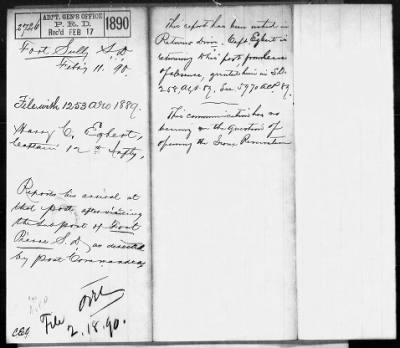 2726
ADJT. GEN'S OFFICE
P. R. D.
Rec'd FEB 17
1890
Fort Sully S.D.
Feb'y 11. 90.
File with 1253 ACP 1889.
Harry C. Egbert,
Captain 12th Infty,
Reports his arrival at
that post, after visiting
the subpost of Fort
Pierre S.D. as directed
by post Commander
File
2.18.90.
This report has been noted in
Returns Divn. Capt. Egbert is
returning to his post from leave
of absence, granted him in S.O.
258. A.G.O. 89. See 5970 ACP 89.
This communication has no
bearing on the Question of
opening the Sioux Reservation